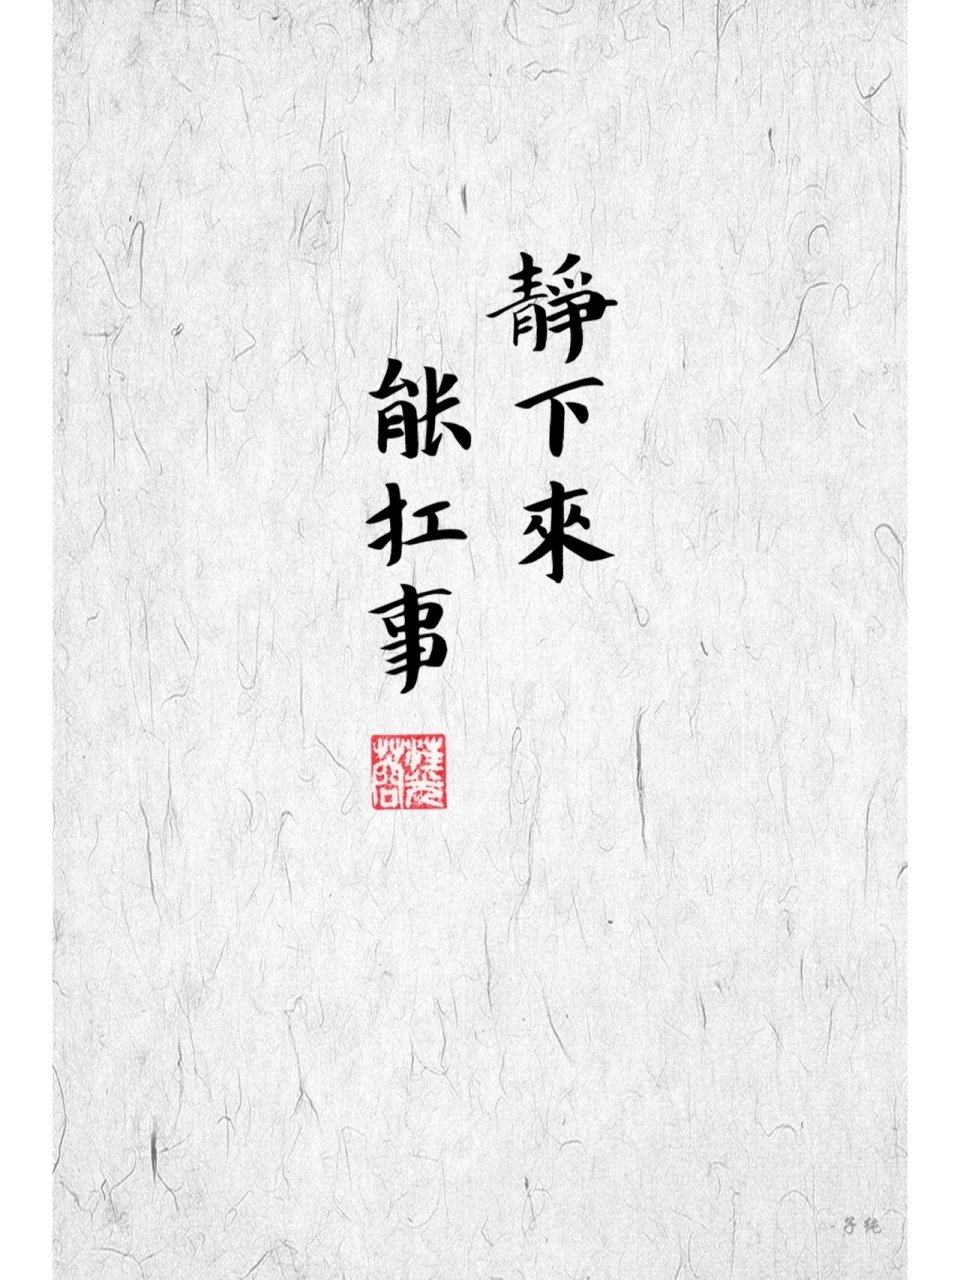 靜下來
能扛事
子純